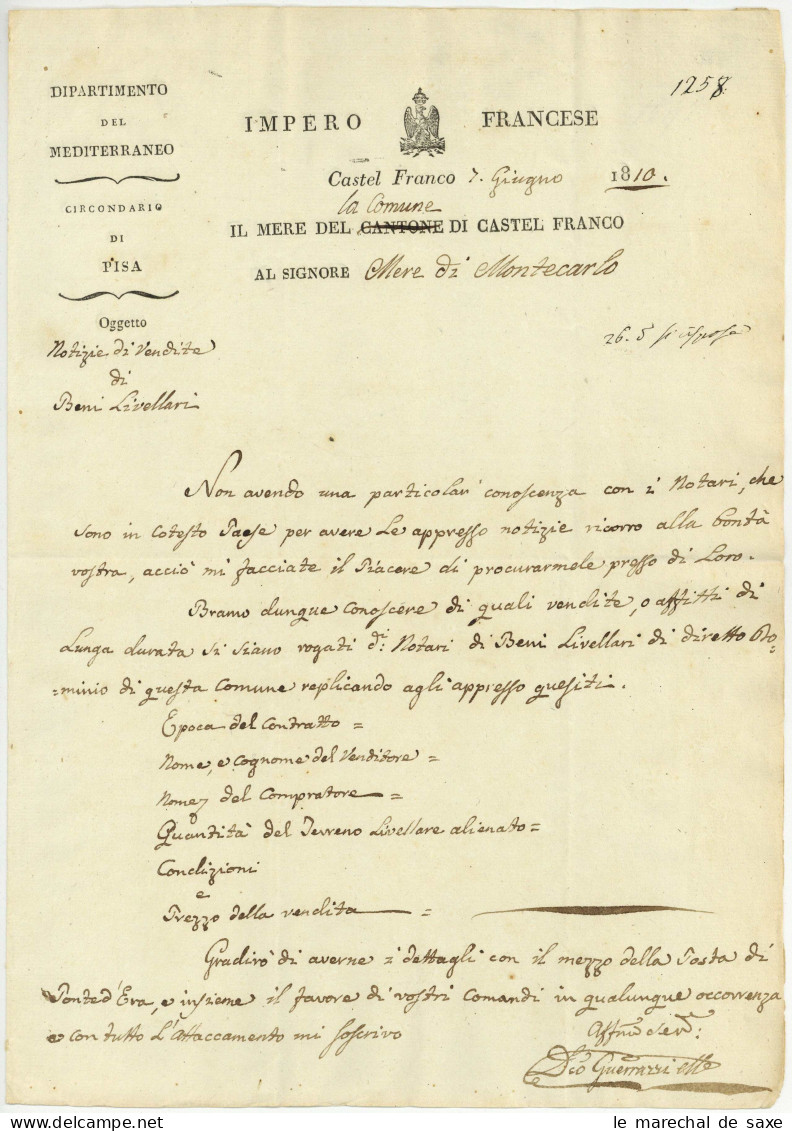 1258
DIPARTIMENTO
DEL
MEDITERRANEO
CIRCONDARIO
DI
PISA
IMPERO FRANCESE
Castel Franco 7. Giugno 1810.
la Comune
IL MERE DEL CANTONE DI CASTEL FRANCO
AL SIGNORE Mere di Montecarlo
26. d
Oggetto
Notizie di Vendite
di
Beni Livellari
Non avendo una particolar conoscenza con i Notari, che
sono in cotesto Paese per avere le appresso notizie ricorro alla bontà
vostra, acciò mi facciate il Piacere di procurarmele presso di Loro.
Bramo dunque conoscere di quali vendite, o affitti di
Lunga durata si siano rogati di: Notari di Beni Livellari di diretto Do-
=minio di questa Comune replicando agli appresso quesiti.
Epoca del Contratto =
Nome, e Cognome del Venditore =
Nome del Compratore =
Quantità del Terreno Livellare alienato =
Condizioni
e
Prezzo della vendita =
Gradirò di averne i dettagli con il mezzo della Posta di
Ponted'Era, e insieme il favore di vostri Comandi in qualunque occorrenza
e con tutto L'Attaccamento mi soscrivo
Affmo Serv:
Guerrazzi
le marechal de saxe